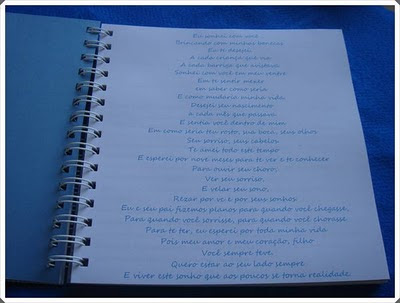 Eu sonhei com você
Brincando com minhas bonecas
Eu te desejei
A cada criança que via
A cada barriga que alisava
Sonhei com você em meu ventre
Em te sentir mexer
em saber como seria
E como mudaria minha vida,
Desejei seu nascimento
a cada mês que passava
E sentia você dentro de mim
Em como seria teu rosto, sua boca, seus olhos
Seu sorriso, seus cabelos
Te amei todo este tempo
E esperei por nove meses para te ver e te conhecer
Para ouvir seu choro,
Ver seu sorriso,
E velar seu sono,
Rezar por vc e por seus sonhos
Eu e seu pai fizemos planos para quando você chegasse,
Para quando você sorrisse, para quando você chorasse
Para te ter, eu esperei por toda minha vida
Pois meu amor e meu coração, filho
Você sempre teve,
Quero estar ao seu lado sempre
E viver este sonho que aos poucos se torna realidade